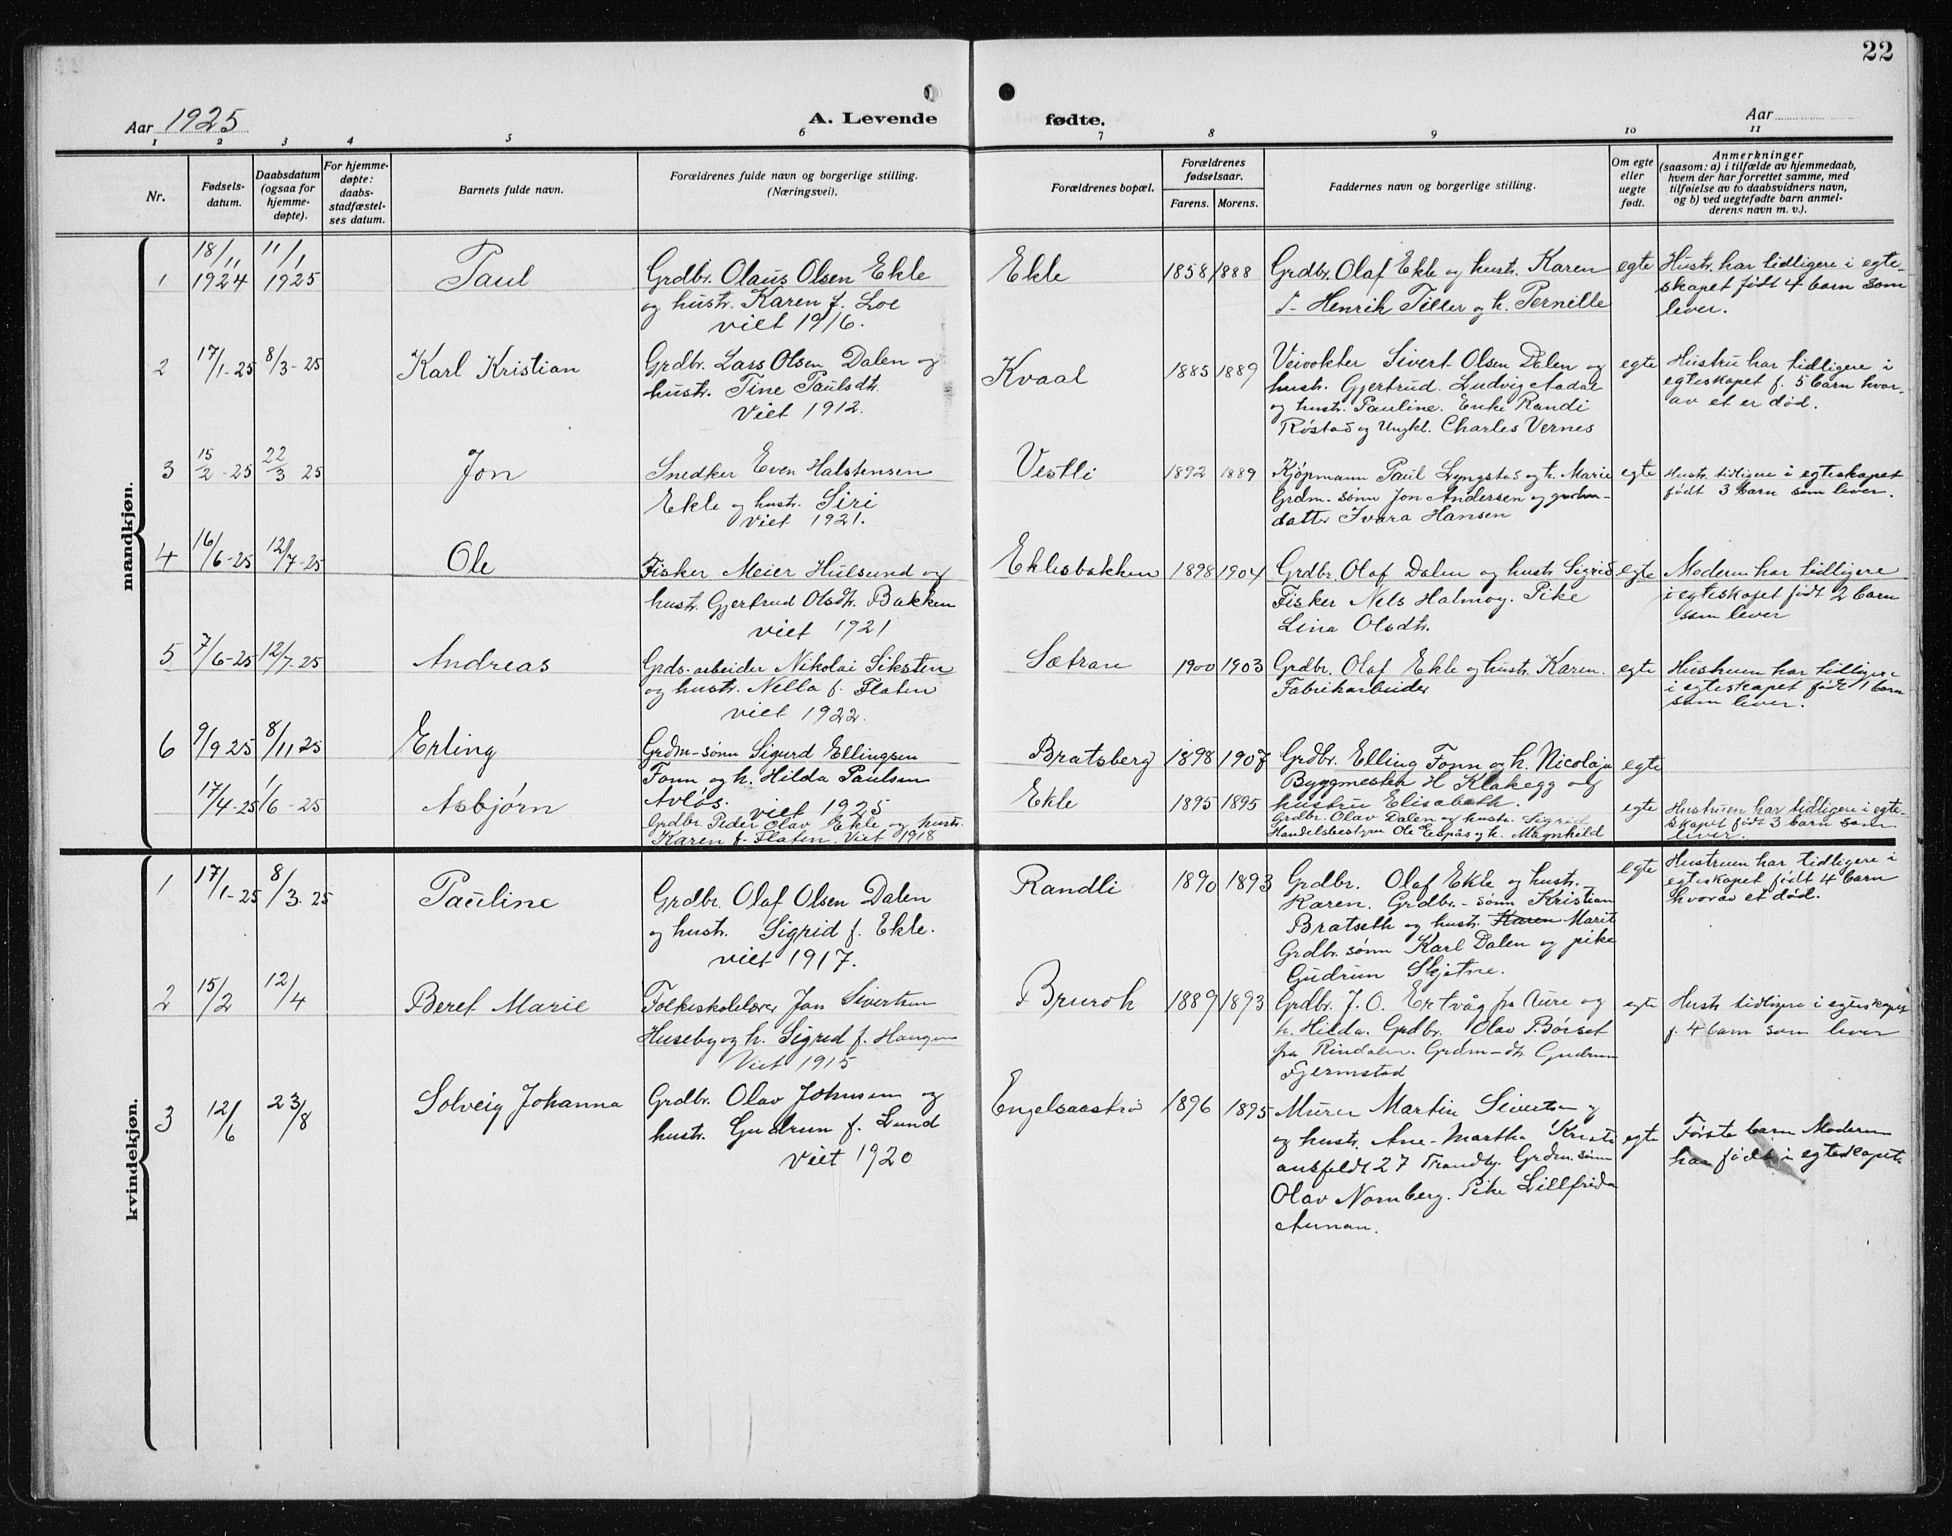 22
Aar 1925
A. Levende fødte.
Aar
1 2 3 4 5 6 7 8 9 10 11
Nr.
Fødsels-
datum.
Daabsdatum
(ogsaa for
hjemme-
døpte).
For hjemme-
døpte:
daabs-
stadfæstel-
ses datum.
Barnets fulde navn.
Forældrenes fulde navn og borgerlige stilling.
(Næringsvei).
Forældrenes bopæl.
Forældrenes
fødselsaar.
Farens. Morens.
Faddernes navn og borgerlige stilling.
Om egte
eller
uegte
født.
Anmerkninger
(saasom: a) i tilfælde av hjemmedaab,
hvem der har forrettet samme, med
tilføielse av to daabsvidners navn,
og b) ved uegtefødte barn anmel-
derens navn m. v.).
mandkjøn.
1
18/11
1924
11/1
1925
Paul
Grdbr. Olaus Olsen Ekle
og hustr. Karen f. Loe
viet 1916.
Ekle
1858 1888
Grdbr. Olaf Ekle og hustr. Karen
Henrik Tiller og h. Pernille
egte
Hustr. har tidligere i egte-
skapet født 4 barn som
lever.
2
17/1-25
8/3-25
Karl Kristian
Grdbr. Lars Olsen Dalen og
hustr. Tine Paulsdt.
Viet 1912.
Kvaal
1885 1889
Veivokter Sivert Olsen Dalen og
hustr. Gjertrud. Ludvig Aadal
og hustr. Pauline. Enke Randi
Røstad og Ungkl. Charles Vernes
egte
Hustru har tidligere i
egteskapet f. 5 barn hvor-
av et er død.
3
15/2-25
22/3 25
Jon
Snedker Even Halstensen
Ekle og hustr. Siri
viet 1921.
Vestli
1892 1889
Kjøpmann Paul Lyngstad og h. Marie
Grdm. sønn Jon Andersen og
datter Ivara Hansen
egte
Hustr. tidligere i egteskapet
født 3 barn som lever.
4
16/6-25
12/7-25
Ole
Fisker Meier Hulsund og
hustr. Gjertrud Olsdtr. Bakken
viet 1921
Eklesbakken
1898 1904
Grdbr. Olaf Dalen og hustr Sigrid
Fisker Nels Halmøy. Pike
Lina Olsdtr.
egte
Moderen har tidligere
i egteskapet født 2 barn
som lever
5
7/6-25
12/7-25
Andreas
Grds. arbeider Nikolai Siksten
og hustr. Nella f. Flaten
viet 1922.
Sætran
1900 1903
Grdbr. Olaf Ekle og hustr. Karen.
Fabrikarbeider
egte
Hustruen har tidligere
i egteskapet født 1 barn
som lever.
6
9/9 25
8/11 25
Erling
Grdm-sønn Sigurd Ellingsen
Fonn og h. Hilda Paulsen
Avløs. viet 1925
Bratsberg
1898 1907
Grdbr. Elling Fonn og h. Nicolaja
Byggmester H Klakegg og
hustru Elisabeth.
egte
17/4-25
1/6-25
Asbjørn
Grdbr. Peder Olav Ekle og hustr.
Karen f. Flaten. Viet 1918
Ekle
1895 1895
Grdbr. Olav Dalen og hustr. Sigrid
Handelsbestyrer Ole og h. Magnhild
egte
Hustruen har tidligere i egte-
skapet født 3 barn som
lever.
kvindekjøn.
1
17/1-25
8/3-25
Pauline
Grdbr. Olaf Olsen Dalen
og hustr. Sigrid f. Ekle.
viet 1917.
Randli
1890 1893
Grdbr. Olaf Ekle og hustr.
Karen. Grdbr.-sønn Kristian
Bratseth og hustr. Karen Marit
Grdbr. sønn Karl Dalen og pike
Gudrun Skjetne.
egte
Hustruen har tidligere i
egteskapet født 4 barn
hvorav et død.
2
15/2
12/4
Beret Marie
Folkeskolelærer Jon Sivertsen
Huseby og h. Sigrid f. Haugen
Viet 1915
Brurok
1889 1893
Grdbr. J. O. Ertvåg fra Aure og
h. Hilda. Grdbr. Olav P. Børset
fra Rindalen. Grdm-dt. Gudrun
Gjermstad
egte
Hustr tidligere i egteskapet
f. 4 barn som lever
3
12/6
23/8
Solveig Johanna
Grdbr. Olav Johnsen og
hustr. Gudrun f. Lund
viet 1920
Engelsaastrø
1896 1895
Murer Martin Sivertsen og
og hustr. Ane-Martha Kristi
ansfeldt 27 Trondhj. Grdm. sønn
Olav Nornberg. Pike Lillfrida
Aunan.
egte
Første barn Moderen
har født i egteskapet.